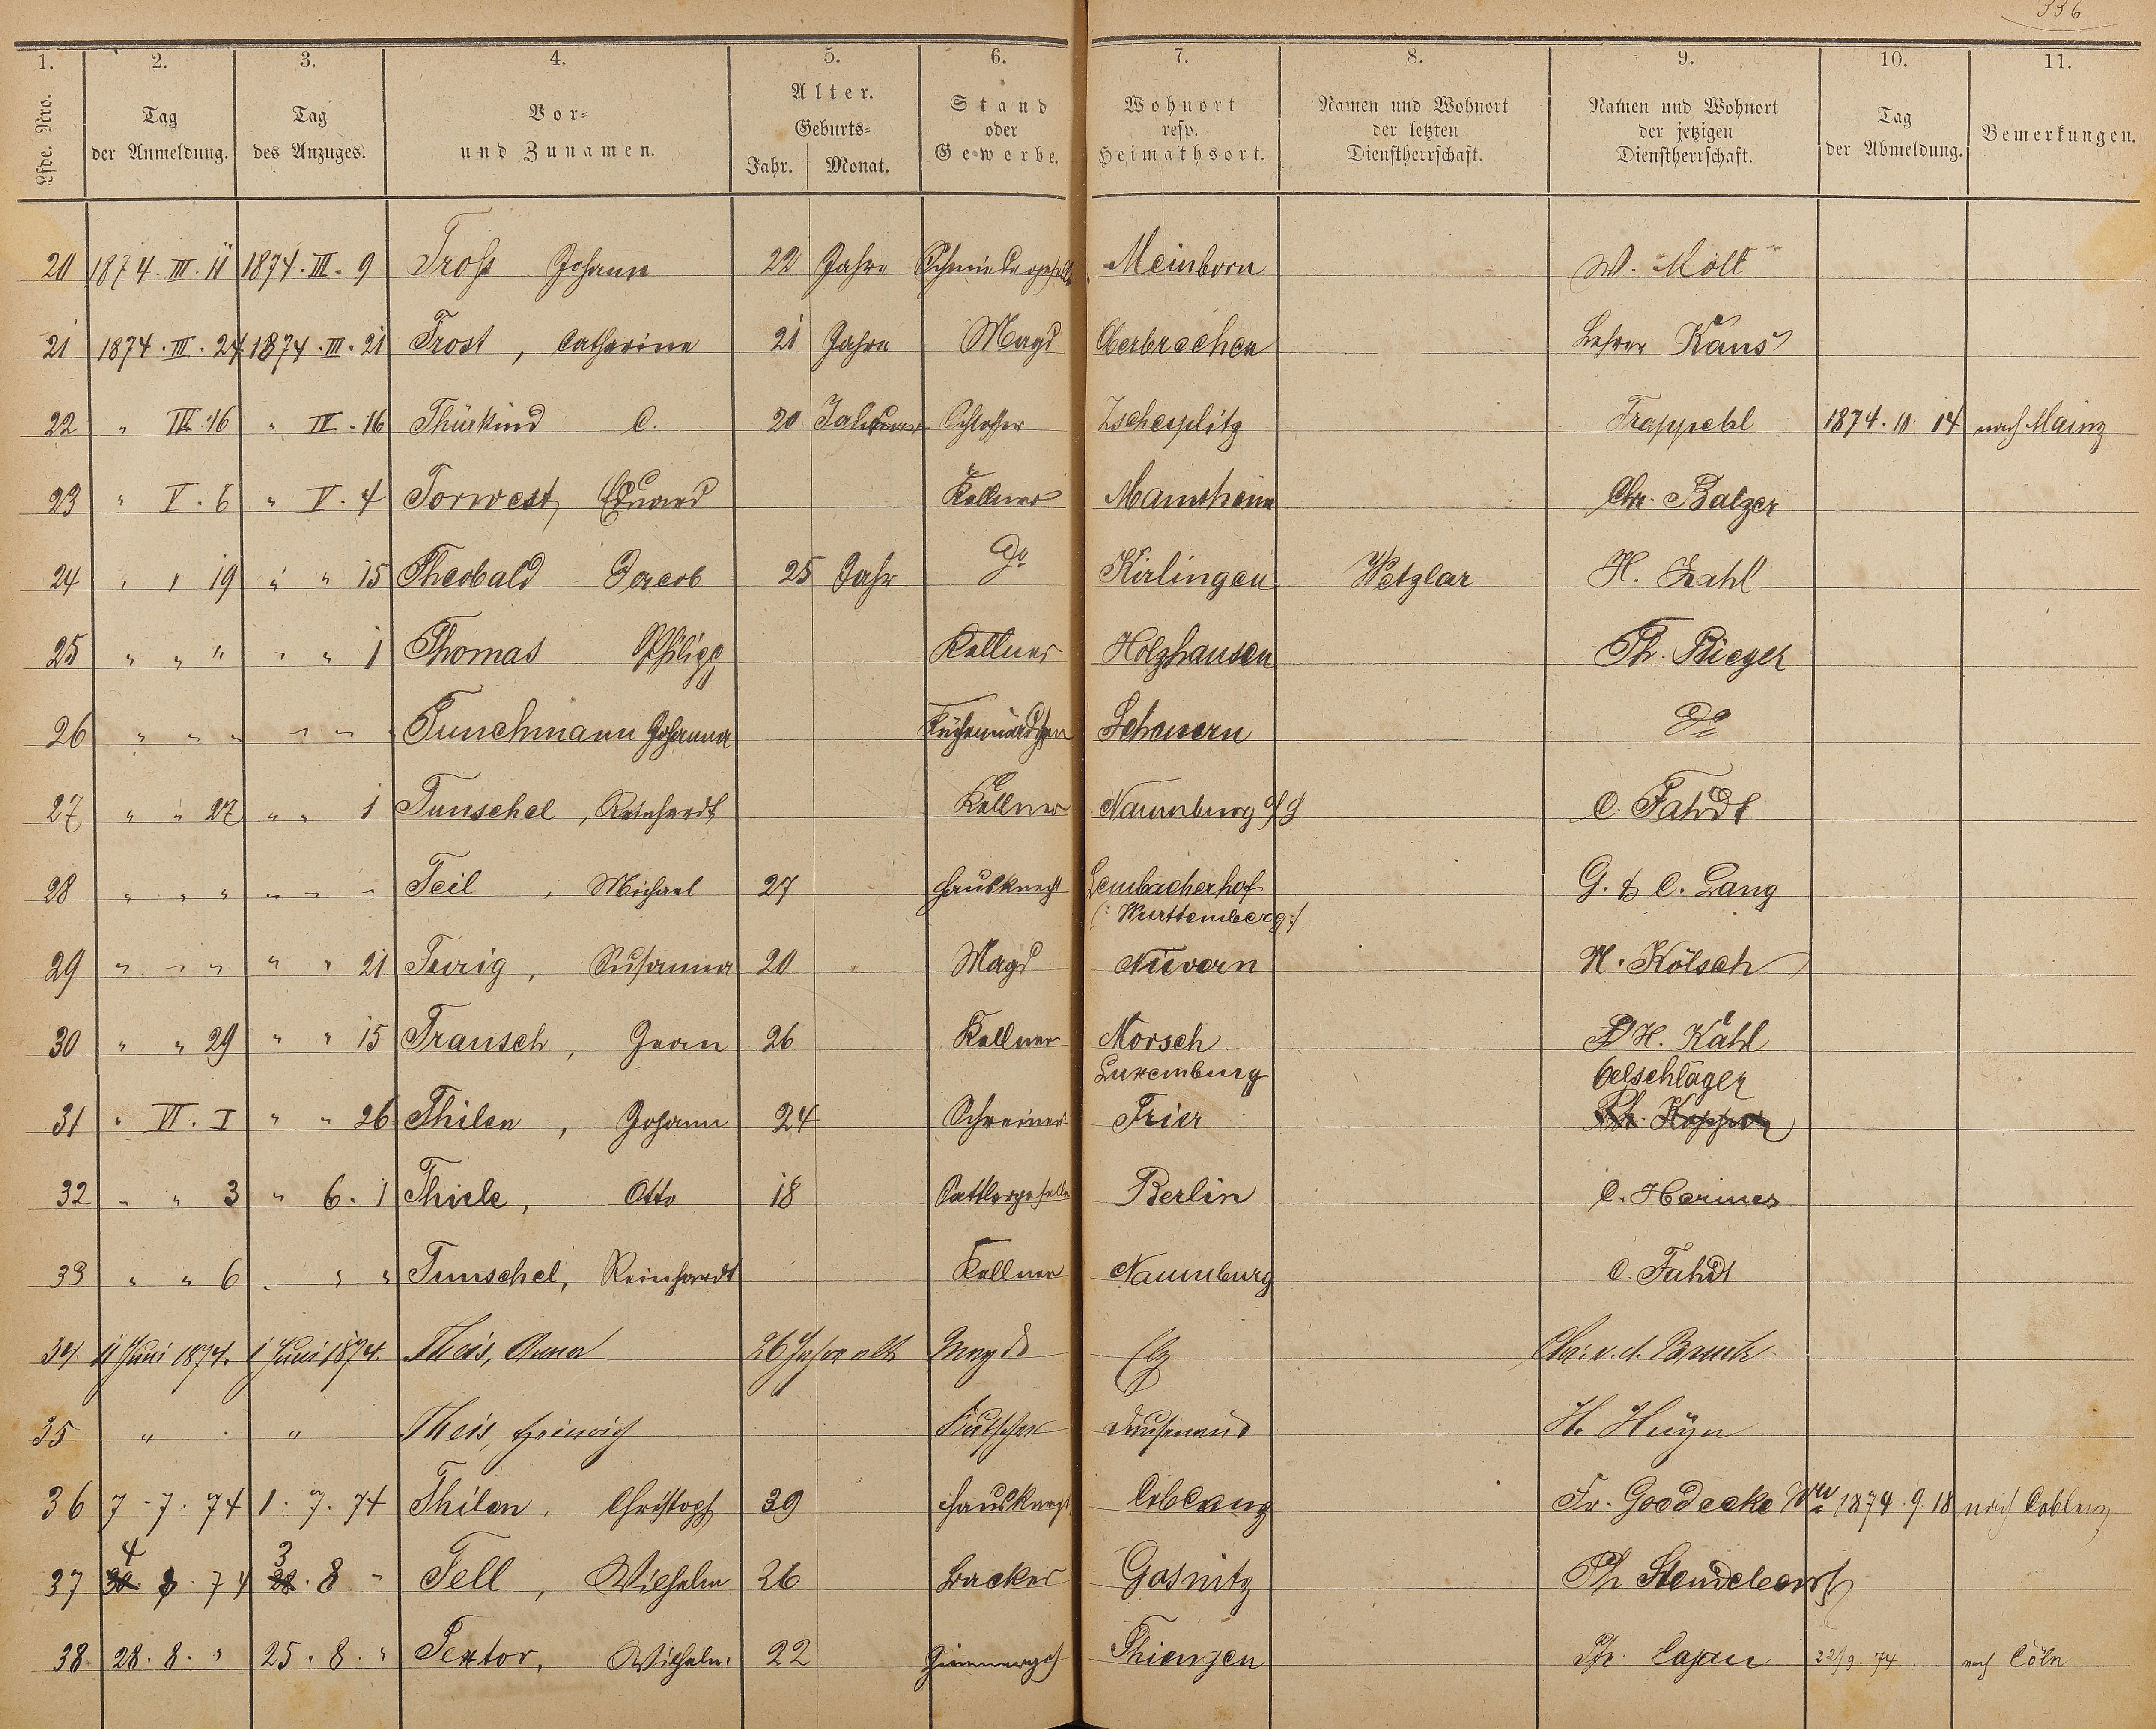 336
1. 2. 3. 4. 5. 6. 7. 8. 9. 10. 11.
Lfde. Nro. Tag der Anmeldung. Tag des Anzuges. Vor= und Zunamen. Alter. Geburts= Jahr. Monat. Stand oder Gewerbe. Wohnort resp. Heimathsort. Namen und Wohnort der letzten Dienstherrschaft. Namen und Wohnort der jetzigen Dienstherrschaft. Tag der Abmeldung. Bemerkungen.
20 1874. III. 11 1874. III. 9 Troß Johann 22 Jahre Schmiedegeselle Meinborn W. Mött
21 1874. III. 24 1874. III. 21 Trost, Catharina 21 Jahre Magd Oberbrechen Lehrer Kaus
22 " III. 16 " IV. 16 Thürkind C. 20 Januar Schlosser Zscheiplitz Trappehl 1874. 11. 14 nach Mainz
23 " V. 6 " V. 4 Torwest, Eduard Kellner Mannheim Chr. Balzer
24 " " 19 " " 15 Theobald Jacob 25 Jahr do Kirlingen Wetzlar H. Zahl
25 " " " " " 1 Thomas Philipp Kellner Holzhausen Ph. Bieger
26 " " " " " " Tunchmann Johanna Küchenmädchen Scheuern do
27 " " 27 " " 1 Tunschel, Reinhardt Kellner Naumburg a/S C. Fahdt
28 " " " " " " Teil, Michael 27 Hausknecht Lembacherhof
(: Württemberg :) G. & C. Lang
29 " " " " " 21 Tevrig, Susanna 20 Magd Nievern H. Kölsch
30 " " 29 " " 15 Transch, Jean 26 Kellner Morsch
Luxemburg H. Kahl
Oelschläger
31 " VI. I " " 26 Thilen, Johann 24 Schreiner Trier
32 " " 3 " 6. 1 Thiele, Otto 18 Sattlergeselle Berlin C. Hermes
33 " " 6 " " " Tunschel, Reinhardt Kellner Naumburg C. Fahdt
34. 11 Juni 1874. 1 Juni 1874. Theis, Anna 26 Jahre alt Magd Elz Chr. v. d.
35 " " Theis, Heinrich Kutscher Dausenau H. Huyn
36 7. 7. 74 1. 7. 74 Thilen, Christoph 39 Hausknecht Coblenz Fr. Goedecke Wwe 1874. 9. 18 nach Coblenz
37 4 8. 74 3 8 " Tell, Wilhelm 26 Backer Gosnitz Ph
38 28. 8. " 25. 8. " Textor, Wilhelm 22 Zimmergos Thiengen Ph. 22/9. 74 nach Cöln